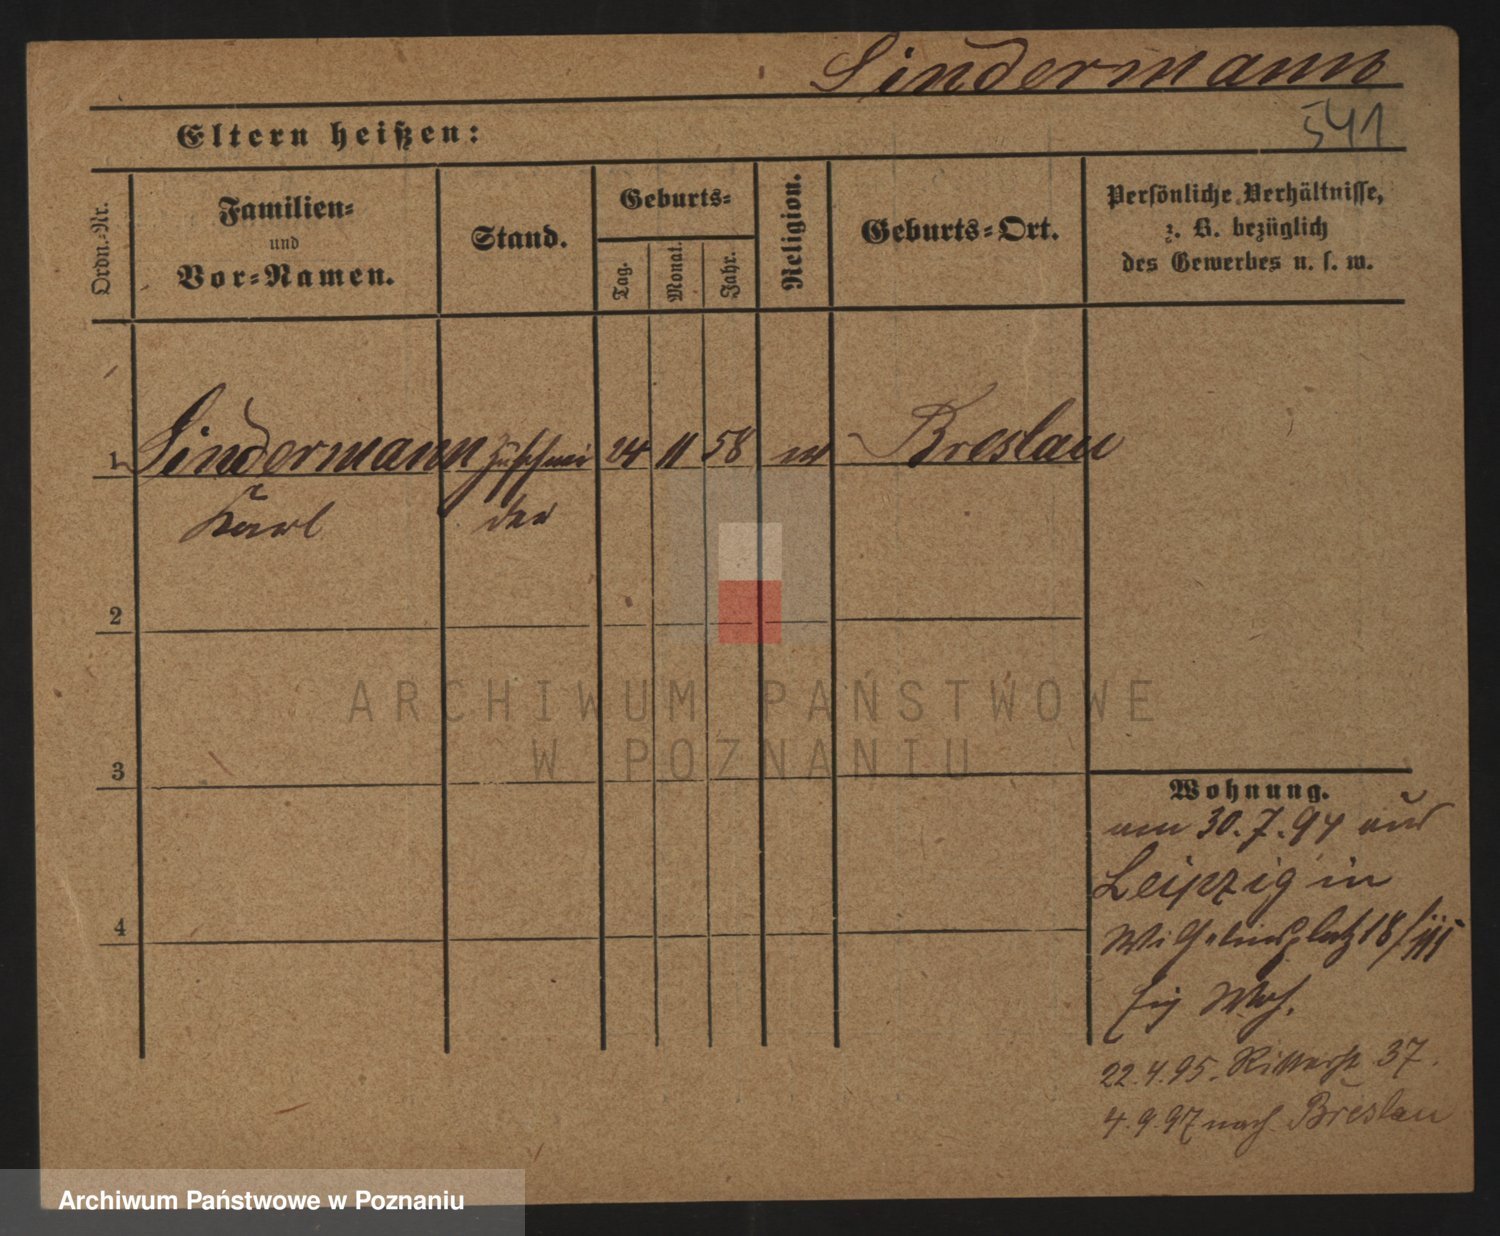 Lindermann
541
Eltern heißen:
Ordn.-Nr.
Familien-
und
Vor-Namen.
Stand.
Geburts-
Tag.
Monat.
Jahr.
Religion.
Geburts-Ort.
Persönliche Verhältnisse,
z. B. bezüglich
des Gewerbes u. s. w.
1 Lindermann Zuschnei 24 11 58 Breslau
Karl der
2
3
4
ARCHIWUM PAŃSTWOWE
W POZNANIU
Wohnung.
am 30.7.94 aus
Leipzig in
Wilhelmsplatz 18/III
22.4.95. Ritterst 37.
4.9.97 nach Breslau
Archiwum Państwowe w Poznaniu